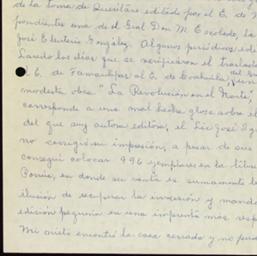 de la toma de Querétaro editado por el E. de N
pondientes una de el Gral Don M. Escobedo, la
José Eleuterio González. Algunos periódicos
Laredo los días que se verificaron el traslado
E. de Tamaulipas al E. de Coahuila,
modesta obra "La Revolución en el Norte",
corresponde a una mal hecha glosa sobre el
del que soy autora editora, el Lic José
no corrigió su impresión, a pesar de que
conseguí colocar 996 ejemplares en la libre
Porrúa, en donde su venta es sumamente
ilusión de recuperar la inversión y mandar
edición pequeña en una imprenta más
Mi nieto encontró la casa cerrada y no pudo